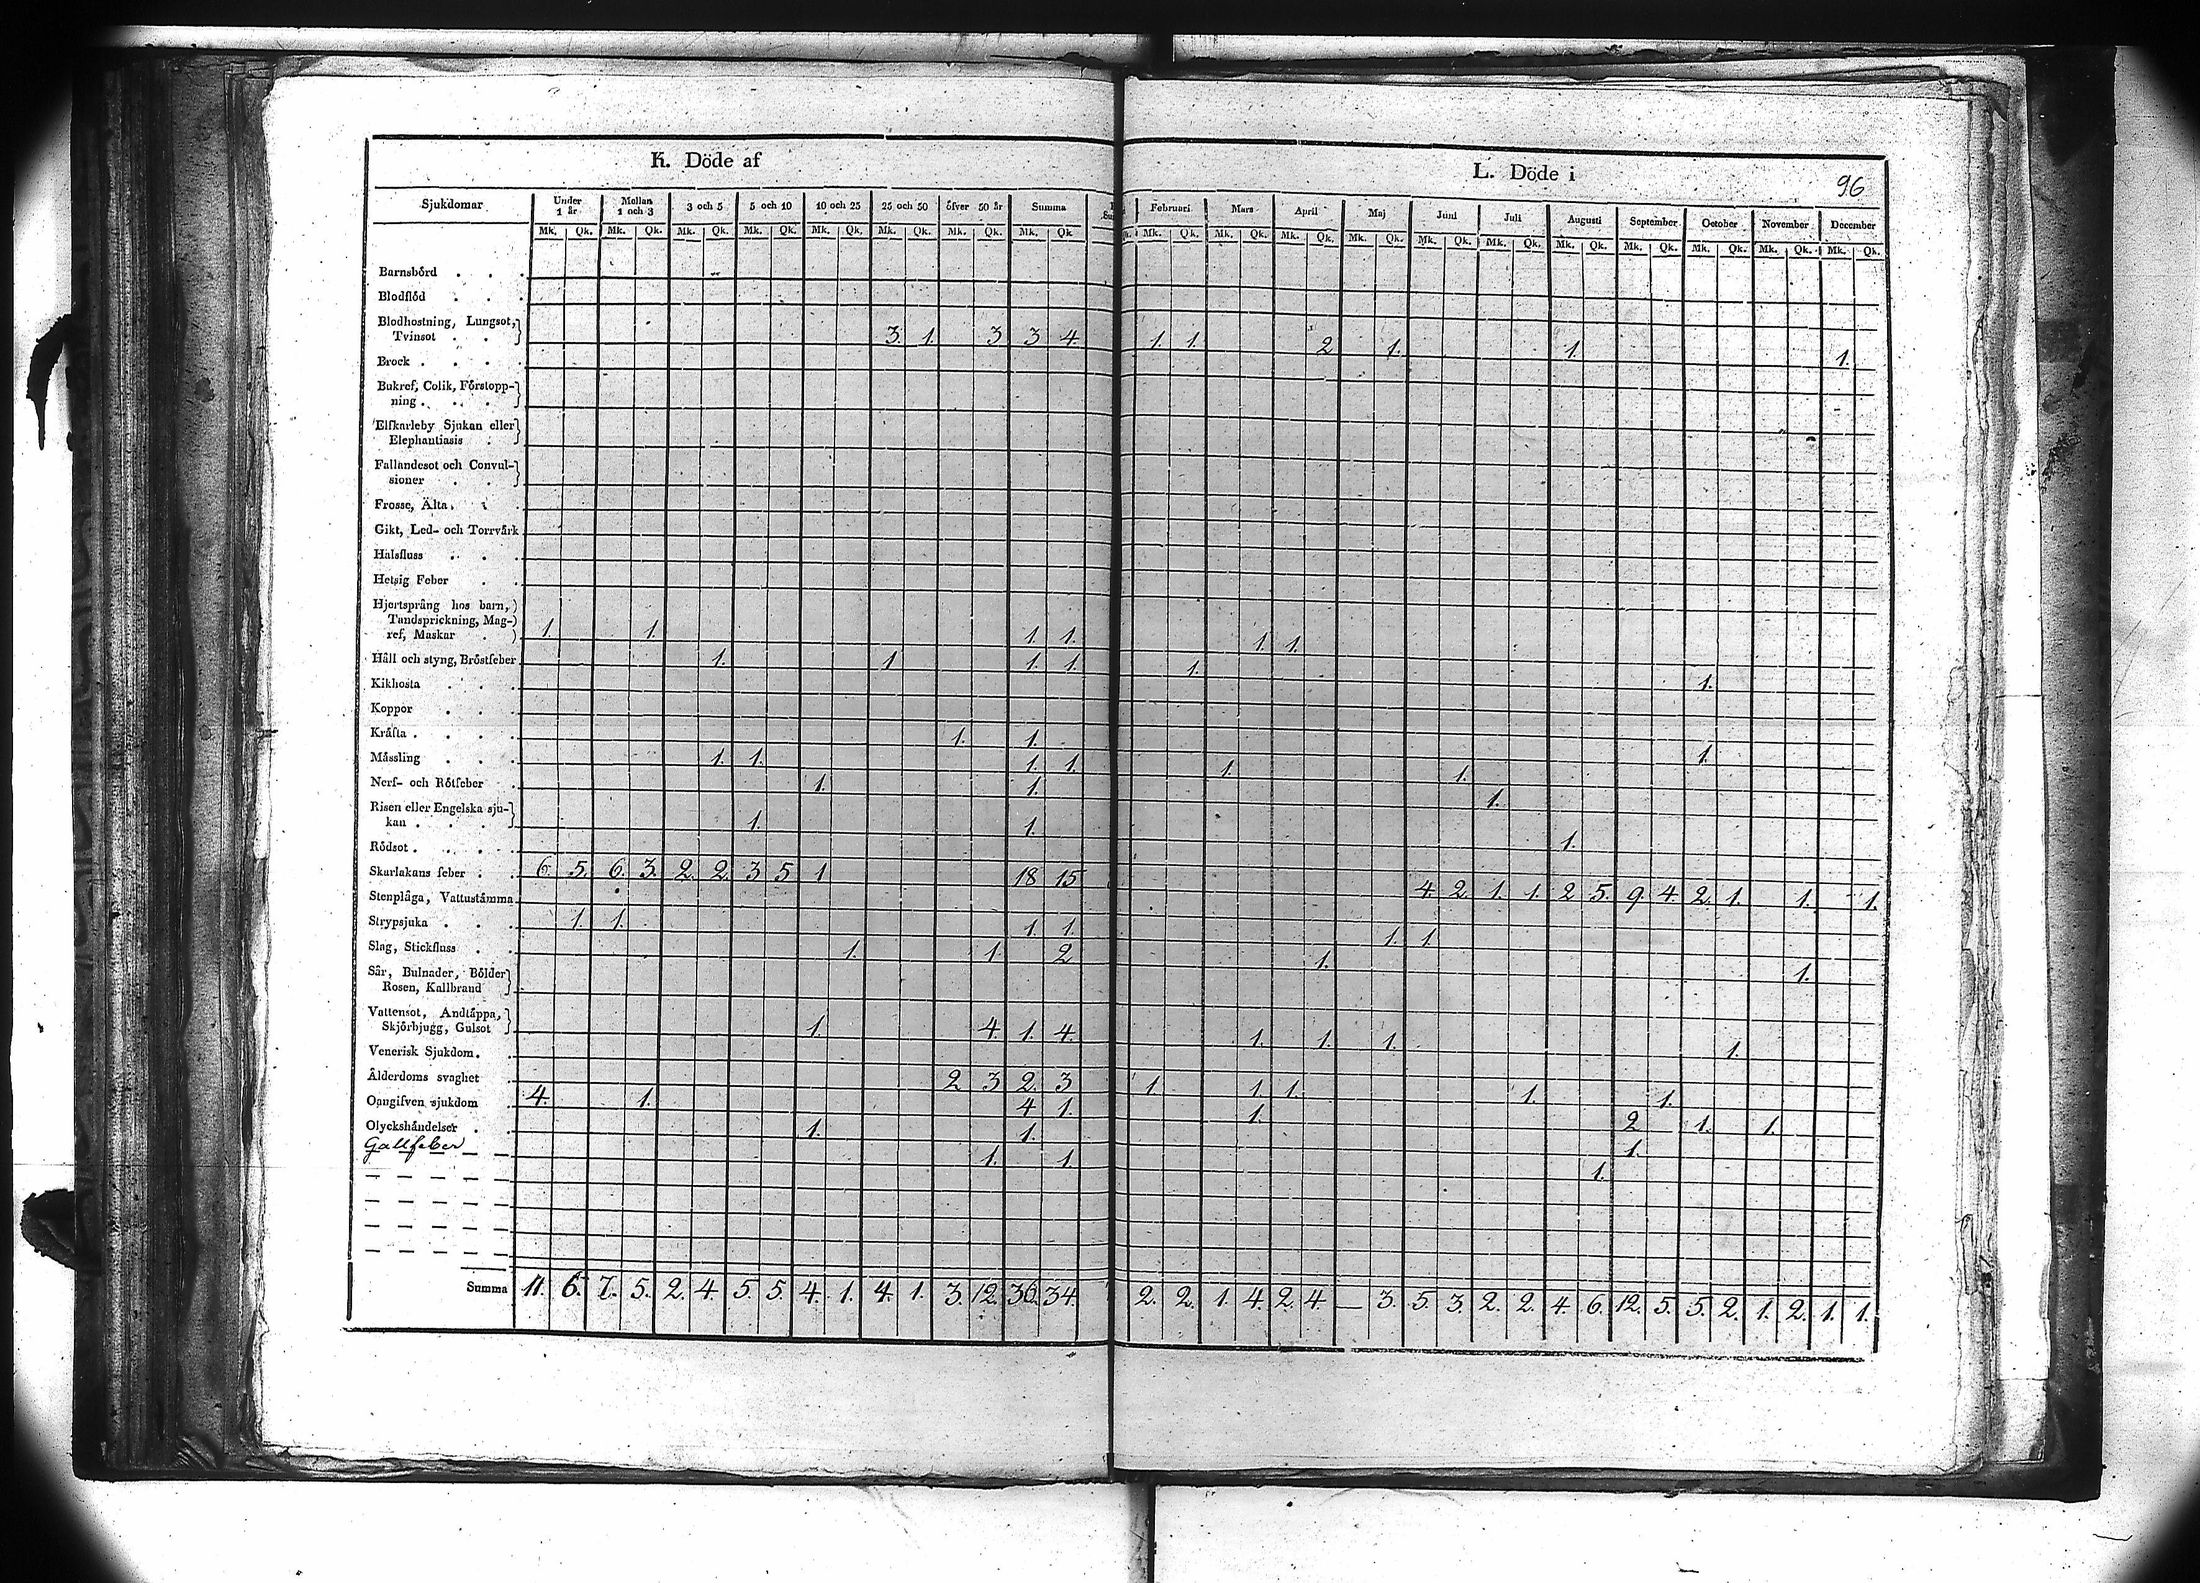 K. Döde af
L. Döde i
96
Sjukdomar Under 1 år Mellan 1 och 3 3 och 5 5 och 10 10 och 25 25 och 50 öfver 50 år Summa
Februari Mars April Maj Juni Juli Augusti September October November December
Mk. Qk. Mk. Qk. Mk. Qk. Mk. Qk. Mk. Qk. Mk. Qk. Mk. Qk. Mk. Qk.
Mk. Qk. Mk. Qk. Mk. Qk. Mk. Qk. Mk. Qk. Mk. Qk. Mk. Qk. Mk. Qk. Mk. Qk. Mk. Qk. Mk. Qk.
Barnsbörd . . .
Blodflöd . . .
Blodhostning, Lungsot,
Tvinsot . . 3. 1. 3 3 4. 1. 1. 2 1. 1. 1.
Brock . . . .
Bukref, Colik, Förstopp-
ning . . . .
Elfkarleby Sjukan eller
Elephantiasis .
Fallandesot och Convul-
sioner . . .
Frosse, Älta . . .
Gikt, Led- och Torrvärk
Halsfluss . . .
Hetsig Feber . .
Hjertsprång hos barn,
Tandsprickning, Mag-
ref, Maskar . 1. 1. 1. 1. 1. 1.
Håll och styng, Bröstfeber 1. 1 1. 1. 1. 1.
Kikhosta . . .
Koppor . . .
Kräfta . . . . 1. 1. 1.
Mässling . . . 1. 1. 1. 1. 1. 1.
Nerf- och Rötfeber . 1. 1. 1.
Risen eller Engelska sju-
kan . . . 1. 1. 1.
Rödsot . . . .
Skarlakans feber . . 6. 5. 6. 3. 2. 2. 3 5 1 18 15 4. 2. 1. 1. 2 5. 9. 4. 2. 1. 1. 1.
Stenplåga, Vattustämma
Strypsjuka . . . 1. 1. 1. 1. 1. 1
Slag, Stickfluss . . 1. 1. 2 1. 1.
Sår, Bulnader, Bölder
Rosen, Kallbrand
Vattensot, Andtäppa,
Skjörbjugg, Gulsot 1. 4. 1. 4. 1. 1. 1. 1.
Venerisk Sjukdom . .
Ålderdoms svaghet . 2 3 2. 3 1. 1. 1. 1. 1.
Oangifven sjukdom . 4. 1. 4 1. 1. 2 1. 1.
Olyckshändelser . . 1. 1. 1.
Gallfeber 1. 1. 1.
Summa 11. 6. 7. 5. 2. 4. 5. 5. 4. 1. 4. 1. 3. 12. 36. 34. 2. 2. 1. 4. 2. 4. — 3. 5. 3. 2. 2. 4. 6. 12. 5. 5. 2. 1. 2. 1. 1.